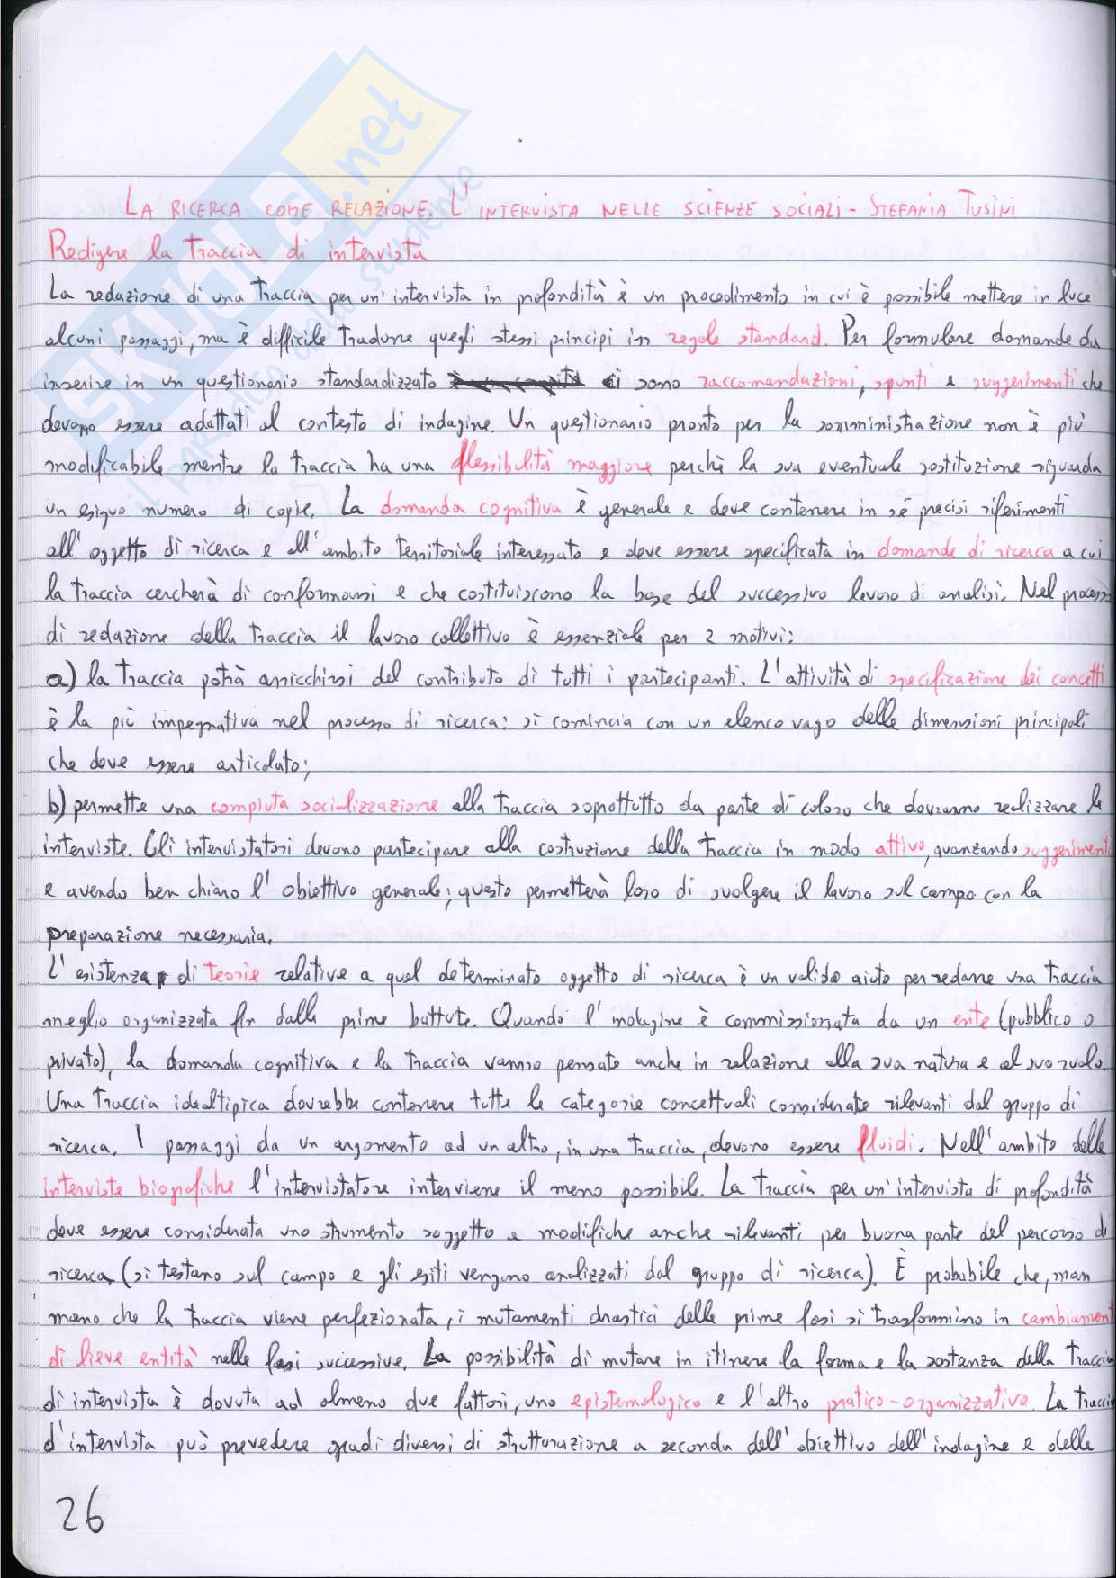 SKUOLA.net
il paradiso dello studente
LA RICERCA COME RELAZIONE. L'INTERVISTA NELLE SCIENZE SOCIALI - STEFANIA TUSINI
Redigere la traccia di intervista
La redazione di una traccia per un'intervista in profondità è un procedimento in cui è possibile mettere in luce
alcuni passaggi, ma è difficile tradurre quegli stessi principi in regole standard. Per formulare domande da
inserire in un questionario standardizzato ci sono raccomandazioni, spunti e suggerimenti che
devono essere adattati al contesto di indagine. Un questionario pronto per la somministrazione non è più
modificabile mentre la traccia ha una flessibilità maggiore perché la sua eventuale sostituzione riguarda
un esiguo numero di copie. La domanda cognitiva è generale e deve contenere in sé precisi riferimenti
all'oggetto di ricerca e all'ambito territoriale interessato e deve essere specificata in domande di ricerca a cui
la traccia cercherà di conformarsi e che costituiscono la base del successivo lavoro di analisi. Nel processo
di redazione della traccia il lavoro collettivo è essenziale per 2 motivi:
a) la traccia potrà arricchirsi del contributo di tutti i partecipanti. L'attività di specificazione dei concetti
è la più impegnativa nel processo di ricerca: si comincia con un elenco vago delle dimensioni principali
che deve essere articolato;
b) permette una compiuta socializzazione alla traccia soprattutto da parte di coloro che dovranno realizzare le
interviste. Gli intervistatori devono partecipare alla costruzione della traccia in modo attivo, avanzando suggerimenti
e avendo ben chiaro l'obiettivo generale; questo permetterà loro di svolgere il lavoro sul campo con la
preparazione necessaria.
L'esistenza di teorie relative a quel determinato oggetto di ricerca è un valido aiuto per redarre una traccia
meglio organizzata fin dalle prime battute. Quando l'indagine è commissionata da un ente (pubblico o
privato), la domanda cognitiva e la traccia vanno pensate anche in relazione alla sua natura e al suo ruolo.
Una traccia idealtipica dovrebbe contenere tutte le categorie concettuali considerate rilevanti dal gruppo di
ricerca. I passaggi da un argomento ad un altro, in una traccia, devono essere fluidi. Nell'ambito delle
interviste biografiche l'intervistatore interviene il meno possibile. La traccia per un'intervista di profondità
deve essere considerata uno strumento soggetto a modifiche anche rilevanti per buona parte del percorso di
ricerca (si testano sul campo e gli esiti vengono analizzati dal gruppo di ricerca). È probabile che, man
mano che la traccia viene perfezionata, i mutamenti drastici delle prime fasi si trasformino in cambiamenti
di lieve entità nelle fasi successive. La possibilità di mutare in itinere la forma e la sostanza della traccia
di intervista è dovuta ad almeno due fattori, uno epistemologico e l'altro pratico-organizzativo. La traccia
d'intervista può prevedere gradi diversi di strutturazione a seconda dell'obiettivo dell'indagine e delle
26